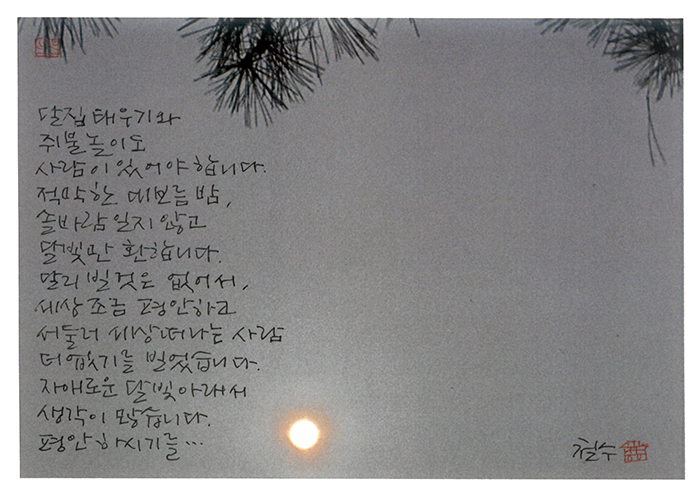 달집태우기와
쥐불놀이도
사람이 있어야 합니다.
적막한 대보름밤,
솔바람 일지 않고
달빛만 환합니다.
말리 빌 것은 없어서,
세상 조금 평안하고
서둘러 세상 떠나는 사람
더 없기를 빌었습니다.
자애로운 달빛 아래서
생각이 많습니다.
평안하시기를…
철수